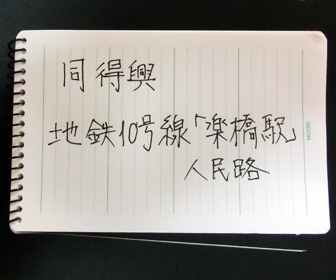 同得興
地鉄10号線「楽橋駅」
人民路